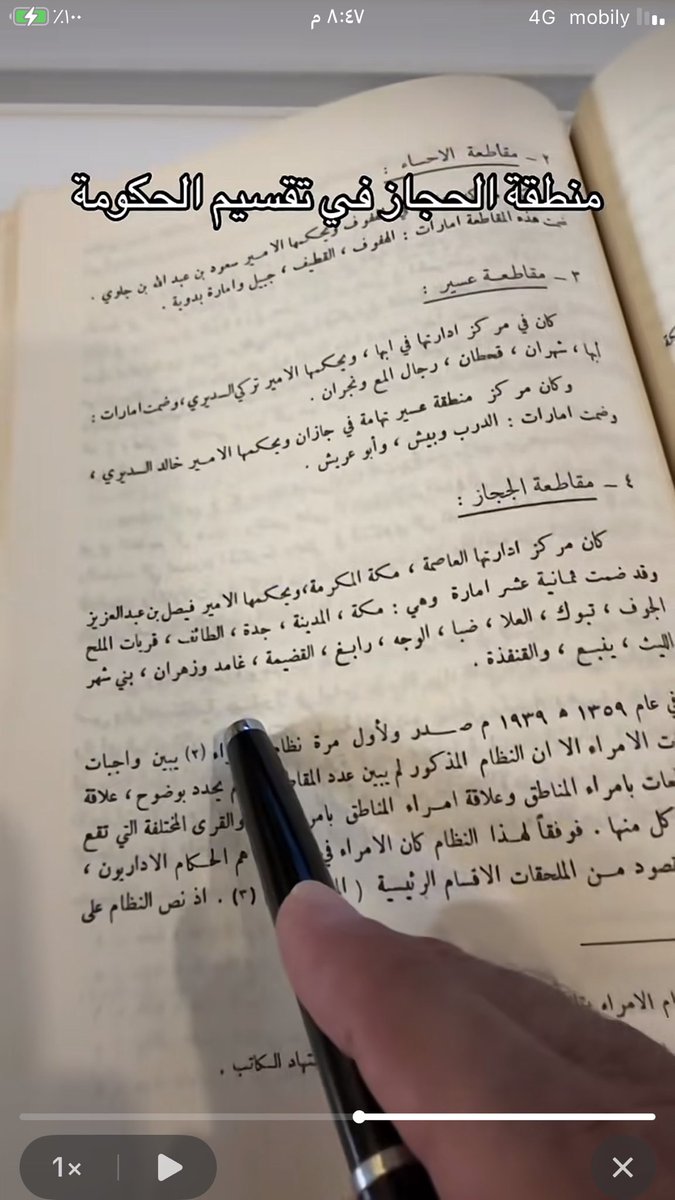 ٪١٠٠
٨:٤٧ م
4G mobily
٢ – مقاطعة الاحساء :
منطقة الحجاز في تقسيم الحكومة
الهفوف ويحكمها الامير سعود بن عبد الله بن جلوي .
ضمت هذه المقاطعة امارات : الهفوف ، القطيف ، جبيل وامارة بدوية .
٣ – مقاطعة عسير :
كان في مركز ادارتها في ابها ، ويحكمها الامير تركي السديري ، وضمت امارات :
أبها ، شهران ، قحطان ، رجال المع ونجران .
وكان مركز منطقة عسير تهامة في جازان ويحكمها الامير خالد السديري ،
وضمت امارات : الدرب وبيش ، وأبو عريش .
٤ – مقاطعة الحجاز :
كان مركز ادارتها العاصمة ، مكة المكرمة ، ويحكمها الامير فيصل بن عبدالعزيز
وقد ضمت ثمانية عشر امارة وهي : مكة ، المدينة ، جدة ، الطائف ، قريات الملح
الجوف ، تبوك ، العلا ، ضبا ، الوجه ، رابغ ، القضيمة ، غامد وزهران ، بني شهر
الليث ، ينبع ، والقنفذة .
في عام ١٣٥٩ ه ١٩٣٩ م صدر ولأول مرة (٢) يبين واجبات
الامراء الا ان النظام المذكور لم يبين عدد يحدد بوضوح ، علاقة
بامراء المناطق وعلاقة امراء المناطق والقرى المختلفة التي تقع
كل منها . فوفقاً لهذا النظام كان الامراء في هم الحكام الاداريون ،
من الملحقات الاقسام الرئيسية ( (٣) . اذ نص النظام على
الامراء
الكاتب .
1×